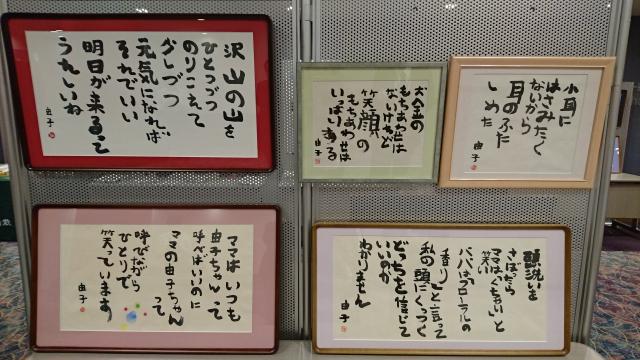 沢山の山を
ひとつづつ
のりこえて
少しづつ
元気になれば
それでいい
明日が来るって
うれしいね
由子
お金の
もちあわせは
ないけれど
笑顔の
もちあわせは
いっぱいある
由子
小耳に
はさみたく
ないから
耳のふた
しめた
由子
ママはいつも
由子ちゃんって
呼べばいいのに
ママの由子ちゃんって
呼びながら
ひとりで
笑っています
由子
頭洗いを
さぼったら
ママはくちゃいと
笑い
パパはフローラルの
香りと言って
私の頭にくっつく
どっちを信じて
いいのか
わかりません
由子